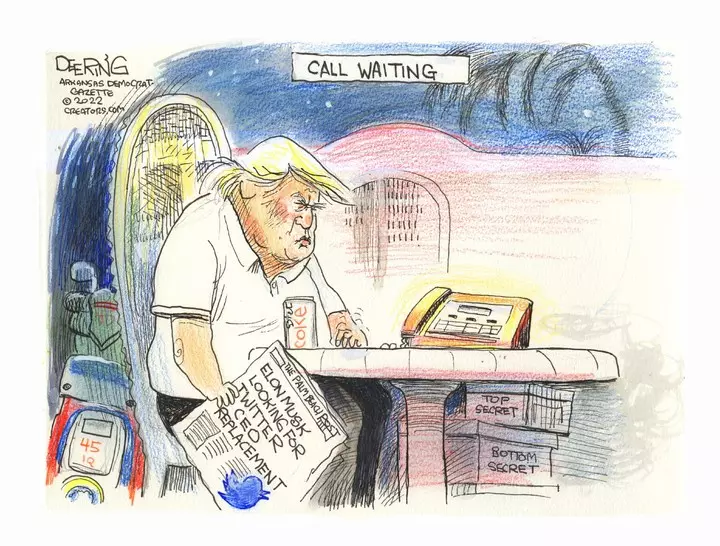 DEERING
ARKANSAS DEMOCRAT-
GAZETTE
© 2022
CREATORS.COM
CALL WAITING
diet
coke
THE PALM BEACH POST
ELON MUSK
LOOKING FOR
TWITTER
CEO
REPLACEMENT
TOP
SECRET
BOTTOM
SECRET
45
IQ